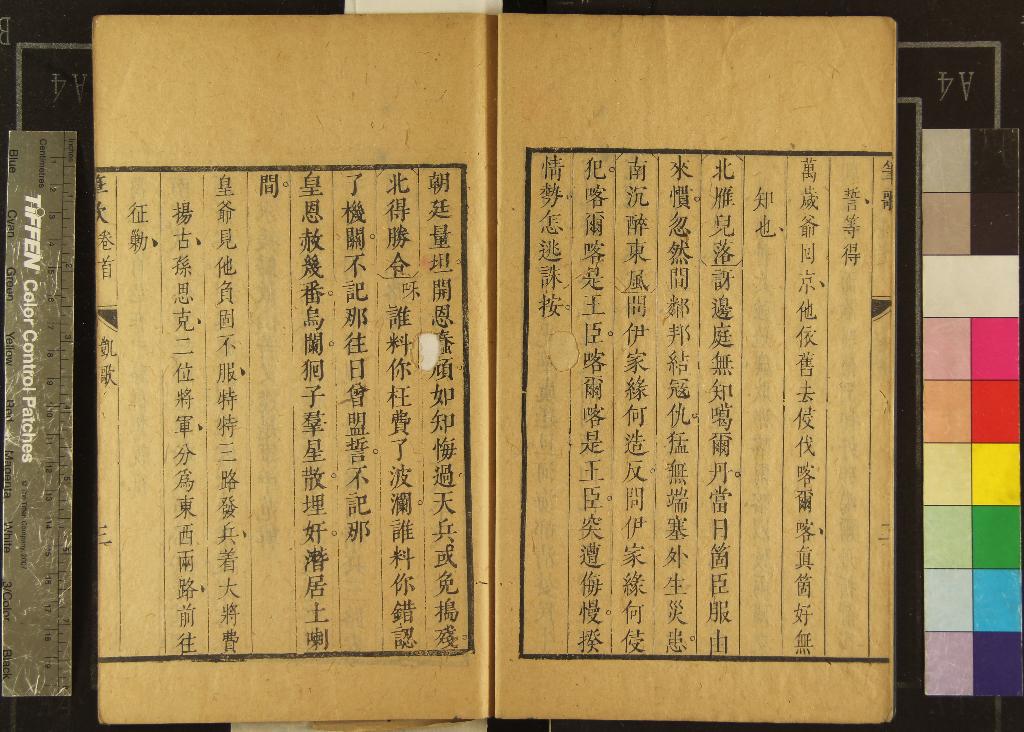 筆歌
誓等得
萬歲爺回京他依舊去侵伐喀爾喀真箇好無
知也
北雁兒落訝邊庭無知噶爾丹當日箇臣服由
來慣忽然間鄰邦結寇仇猛無端塞外生災患
南沉醉東風問伊家緣何造反問伊家緣何侵
犯喀爾喀是王臣喀爾喀是王臣突遭侮慢揆
情勢怎逃誅按
朝廷量坦開恩蠢頑如知悔過天兵或免搗殘
北得勝令呀誰料你枉費了波瀾誰料你錯認
了機關不記那往日曾盟誓不記那
皇恩赦幾番烏闌狪子羣星散埋奸潛居土喇
間
皇爺見他負固不服特特三路發兵着大將費
揚古孫思克二位將軍分爲東西兩路前往
征勦
筆歌 卷首 凱歌 三
A4
A4
TIFFEN Color Control Patches
Blue Cyan Green Yellow Red Magenta White 3/Color Black
Inches
Centimetres